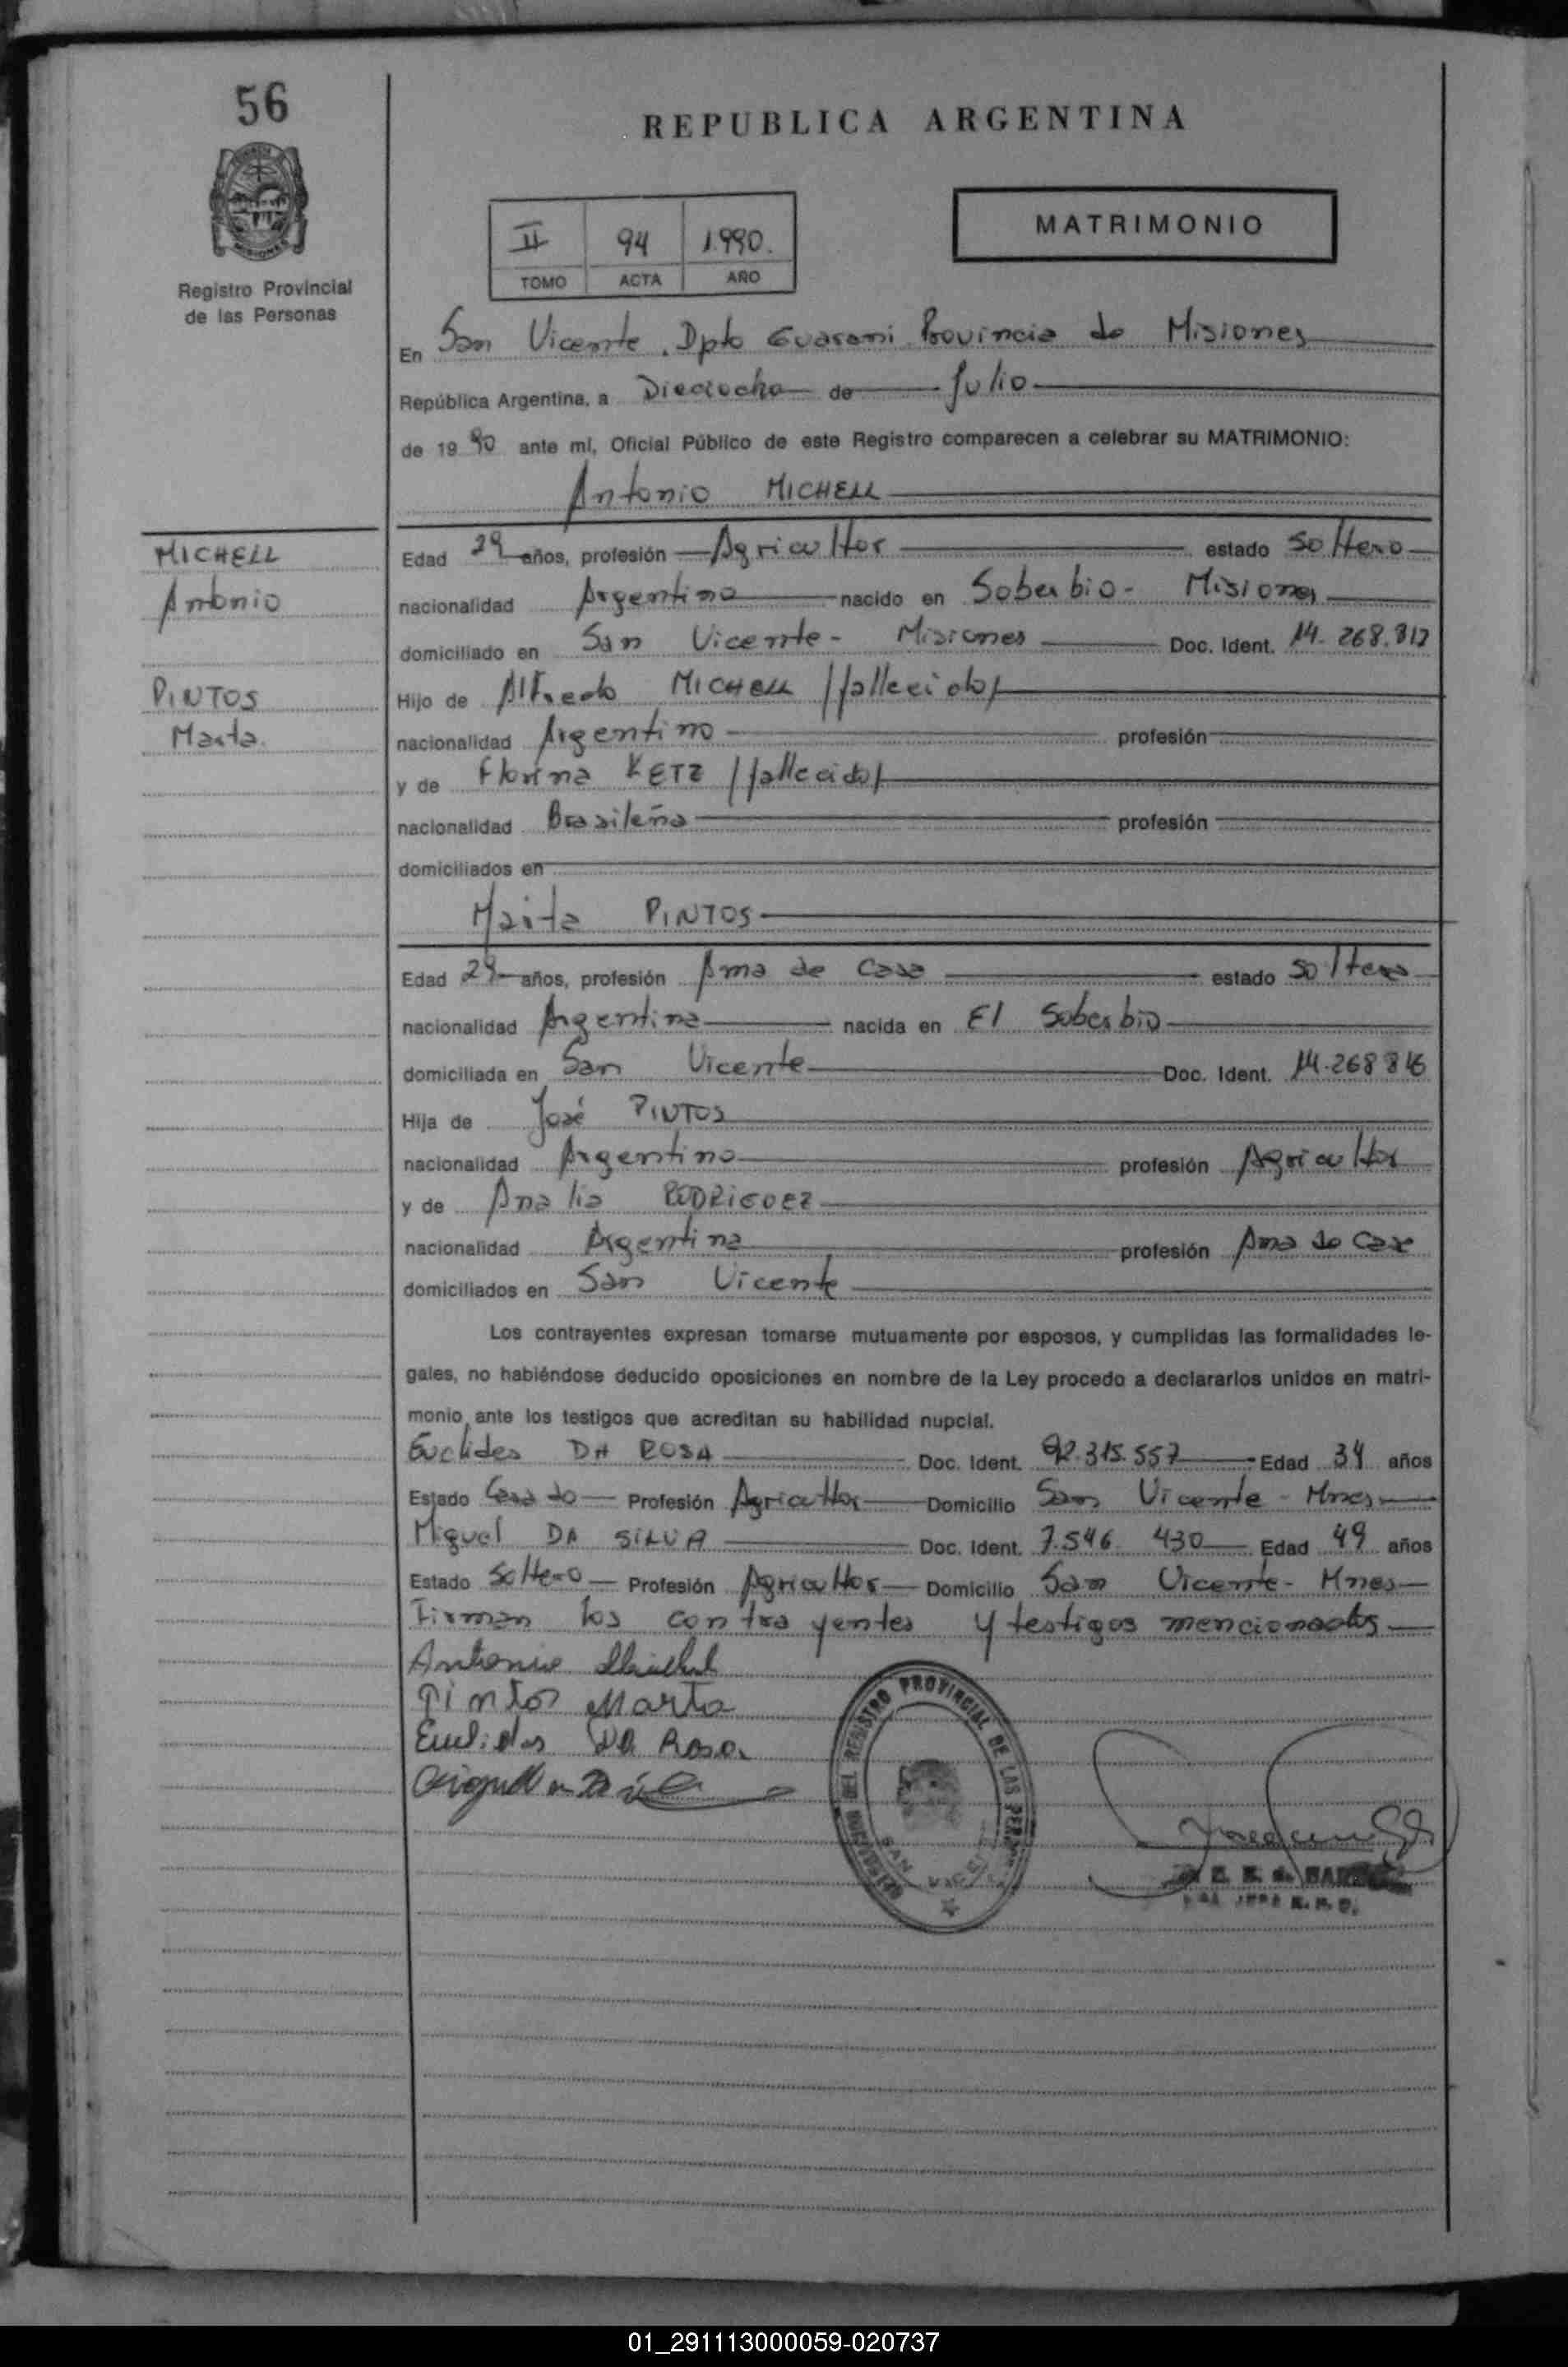 56
REPUBLICA ARGENTINA
MATRIMONIO
II 94 1.990.
TOMO ACTA AÑO
Registro Provincial
de las Personas
En San Vicente, Dpto Guarani Provincia de Misiones
República Argentina, a Dieciocho de Julio
de 19 90 ante mí, Oficial Público de este Registro comparecen a celebrar su MATRIMONIO:
Antonio MICHELL
MICHELL
Antonio
PINTOS
Marta.
Edad 29 años, profesión Agricultor estado Soltero
nacionalidad Argentino nacido en Soberbio - Misiones
domiciliado en San Vicente - Misiones Doc. Ident. 14.268.817
Hijo de Alfredo MICHELL /fallecido/
nacionalidad Argentino profesión
y de Florina KETZ /fallecido/
nacionalidad Brasileña profesión
domiciliados en
Marta PINTOS
Edad 29 años, profesión Ama de Casa estado Soltera
nacionalidad Argentina nacida en El Soberbio
domiciliada en San Vicente Doc. Ident. 14.268816
Hija de José PINTOS
nacionalidad Argentino profesión Agricultor
y de Analia RODRIGUEZ
nacionalidad Argentina profesión Ama de Casa
domiciliados en San Vicente
Los contrayentes expresan tomarse mutuamente por esposos, y cumplidas las formalidades le-
gales, no habiéndose deducido oposiciones en nombre de la Ley procedo a declararlos unidos en matri-
monio ante los testigos que acreditan su habilidad nupcial.
Euclides DA ROSA Doc. Ident. 92.315.557 Edad 34 años
Estado Casado Profesión Agricultor Domicilio San Vicente - Mnes
Miguel DA SILVA Doc. Ident. 7.546.430 Edad 49 años
Estado Soltero Profesión Agricultor Domicilio San Vicente - Mnes
Firman los contrayentes y testigos mencionados
Antonio Michel
Pintos Marta
Euclides Da Rosa
DEL REGISTRO PROVINCIAL DE LAS
SAN VICENTE
01_291113000059-020737